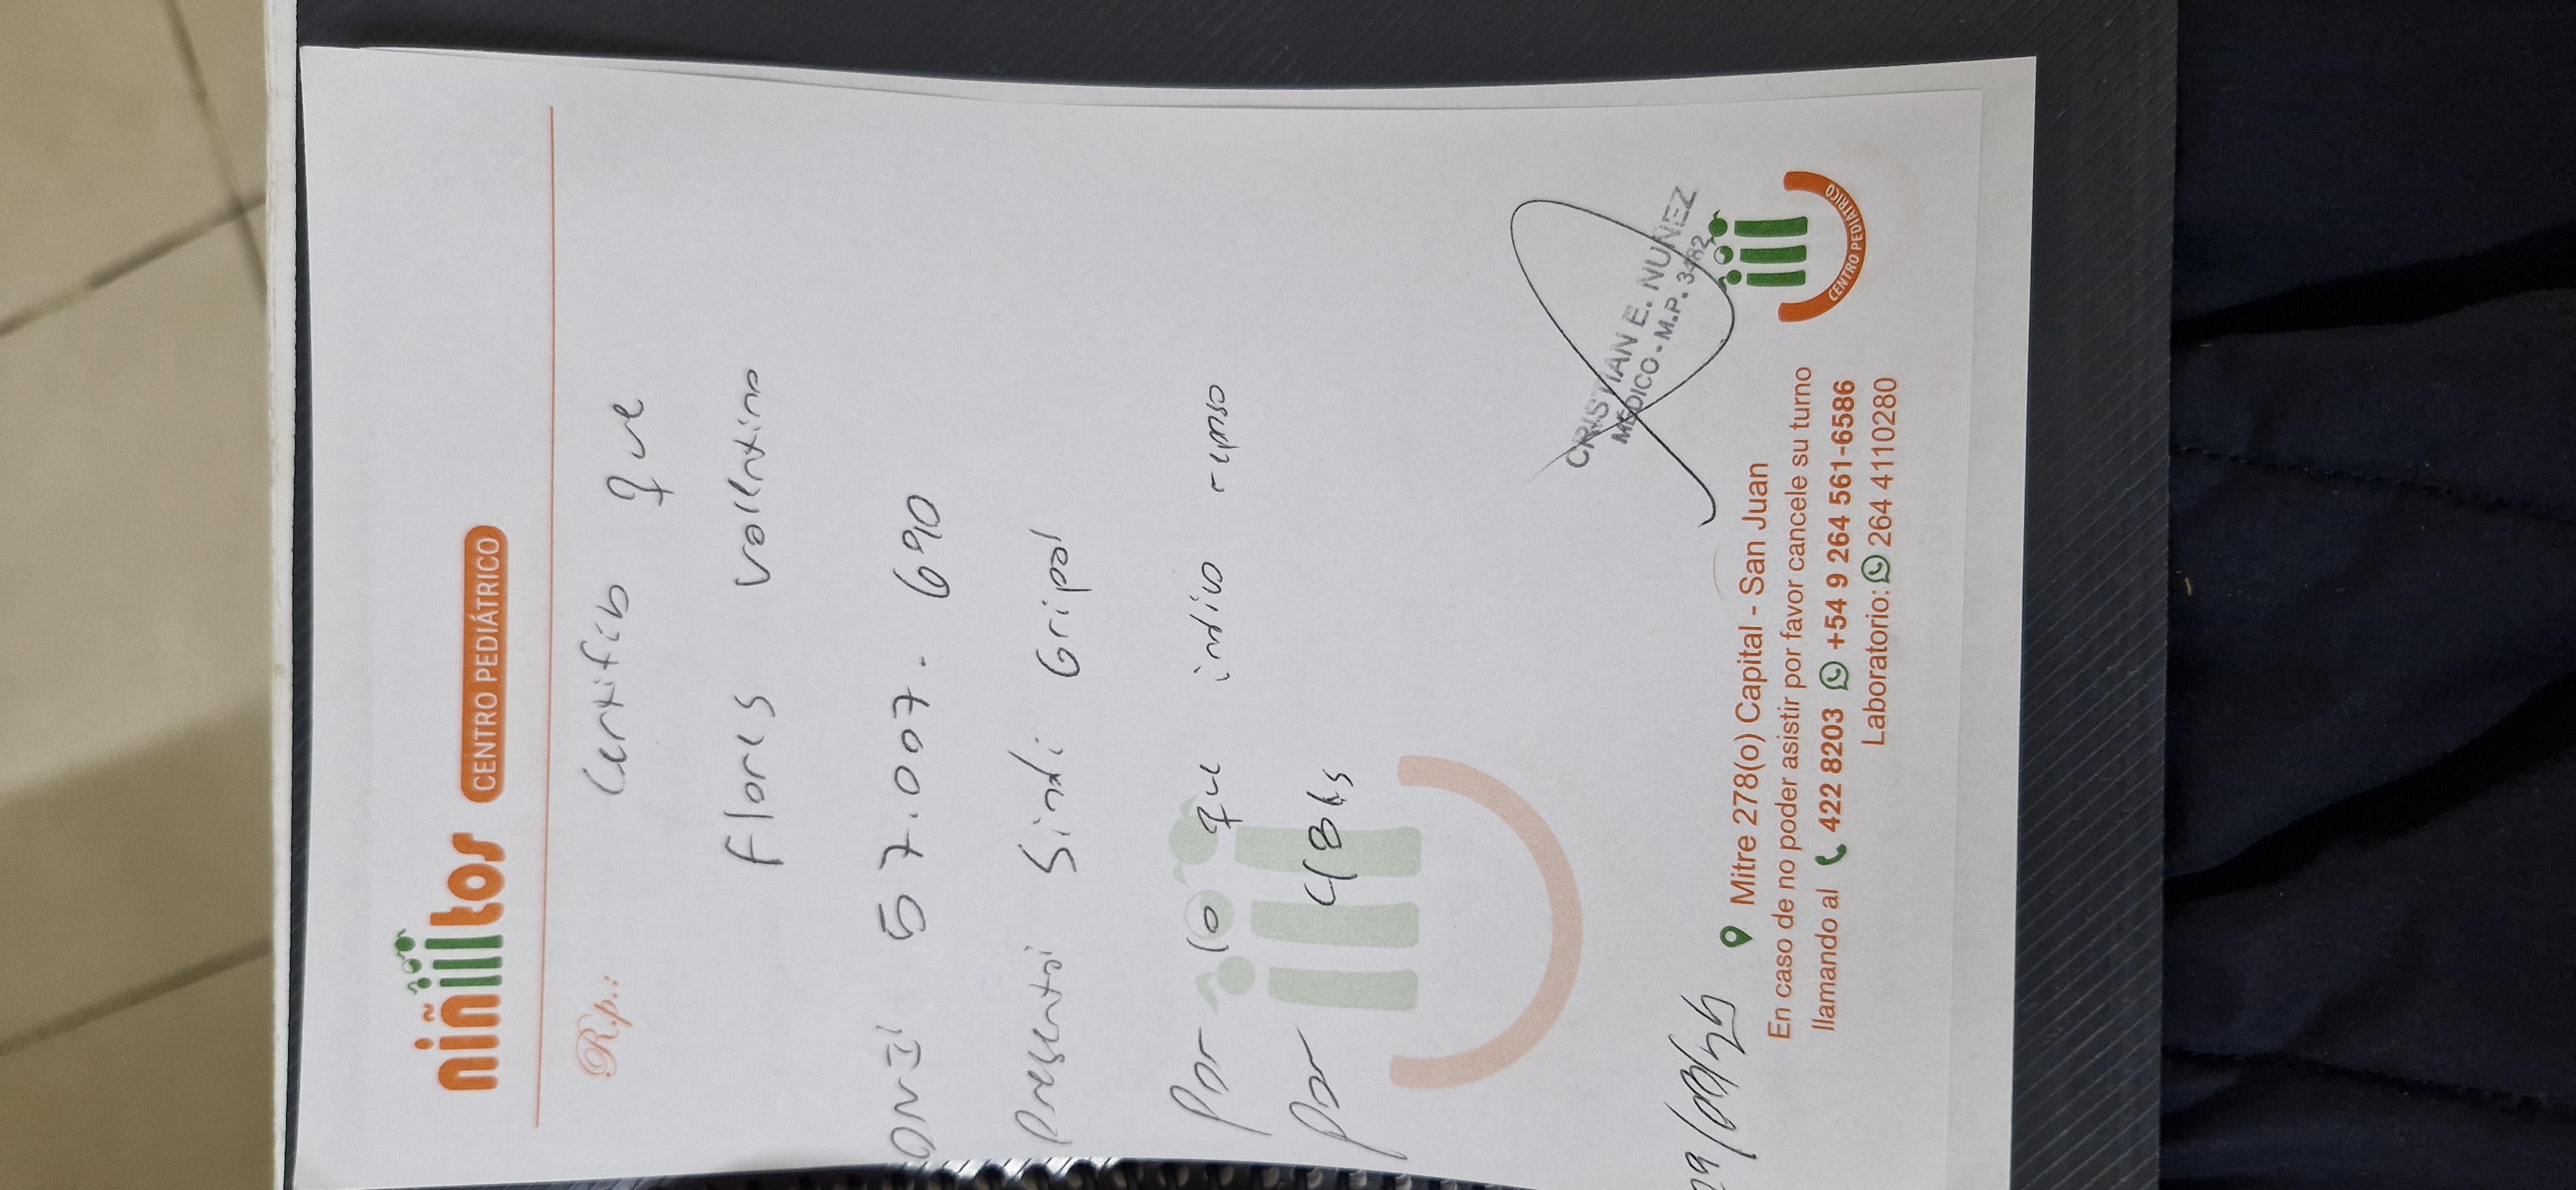 niñitos CENTRO PEDIÁTRICO
R.p.:
Certifico que
Flores Valentino
DNI 57.007.690
Presenta Sind. Gripal
Por lo que indico reposo
Por 48 hs
CRISTIAN E. NUÑEZ
MÉDICO - M.P. 3482
Mitre 278(o) Capital - San Juan
En caso de no poder asistir por favor cancele su turno
llamando al 422 8203 +54 9 264 561-6586
Laboratorio: 264 4110280
CENTRO PEDIÁTRICO